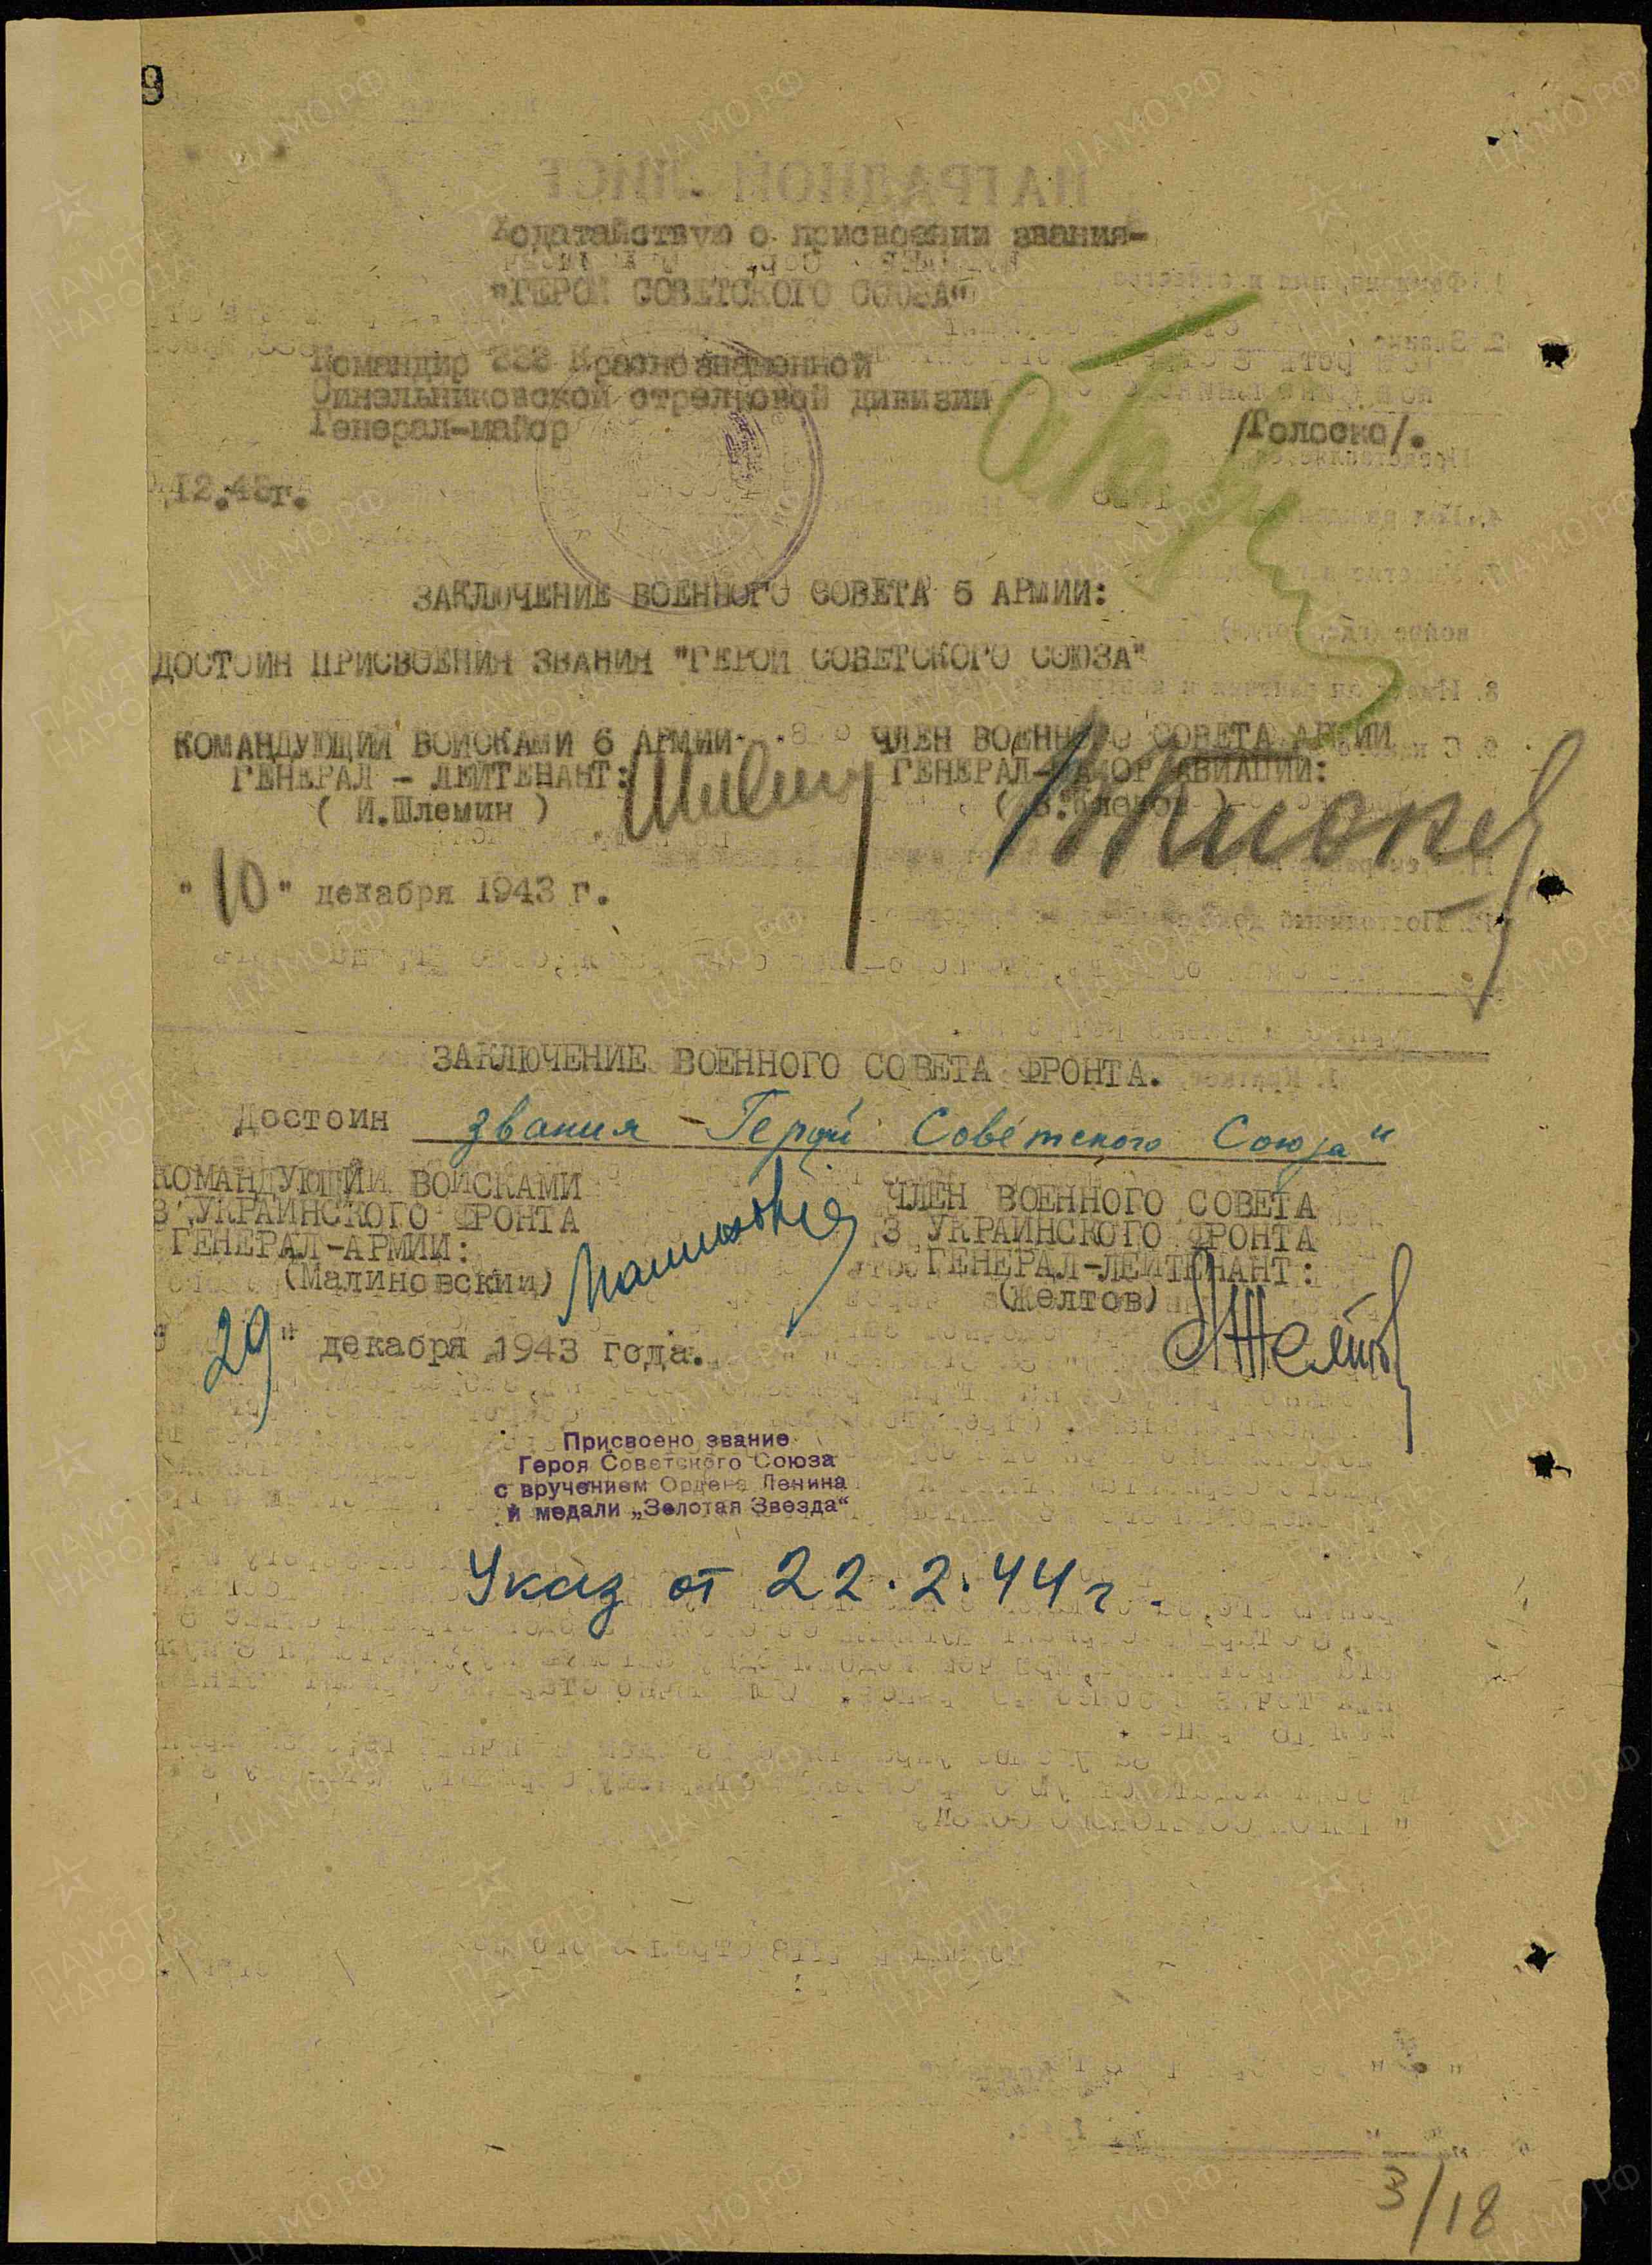 9
Ходатайствую о присвоении звания-
"ГЕРОЙ СОВЕТСКОГО СОЮЗА"
Командир 333 Краснознаменной
Синельниковской стрелковой дивизии
Генерал-майор /Голоско/.
12.43г.
ЗАКЛЮЧЕНИЕ ВОЕННОГО СОВЕТА 6 АРМИИ:
ДОСТОИН ПРИСВОЕНИЯ ЗВАНИЯ "ГЕРОЙ СОВЕТСКОГО СОЮЗА"
КОМАНДУЮЩИЙ ВОЙСКАМИ 6 АРМИИ ЧЛЕН ВОЕННОГО СОВЕТА АРМИИ
ГЕНЕРАЛ - ЛЕЙТЕНАНТ: ГЕНЕРАЛ-МАЙОР АВИАЦИИ:
( И.Шлемин )
"10" декабря 1943 г.
ЗАКЛЮЧЕНИЕ ВОЕННОГО СОВЕТА ФРОНТА.
Достоин звания "Герой Советского Союза"
КОМАНДУЮЩИЙ ВОЙСКАМИ ЧЛЕН ВОЕННОГО СОВЕТА
3 УКРАИНСКОГО ФРОНТА 3 УКРАИНСКОГО ФРОНТА
ГЕНЕРАЛ-АРМИИ: ГЕНЕРАЛ-ЛЕЙТЕНАНТ:
(Малиновский) (Желтов)
"29" декабря 1943 года.
Присвоено звание
Героя Советского Союза
с вручением Ордена Ленина
и медали „Золотая Звезда“
Указ от 22.2.44г.
3/18
ПАМЯТЬ НАРОДА
ЦАМО.РФ